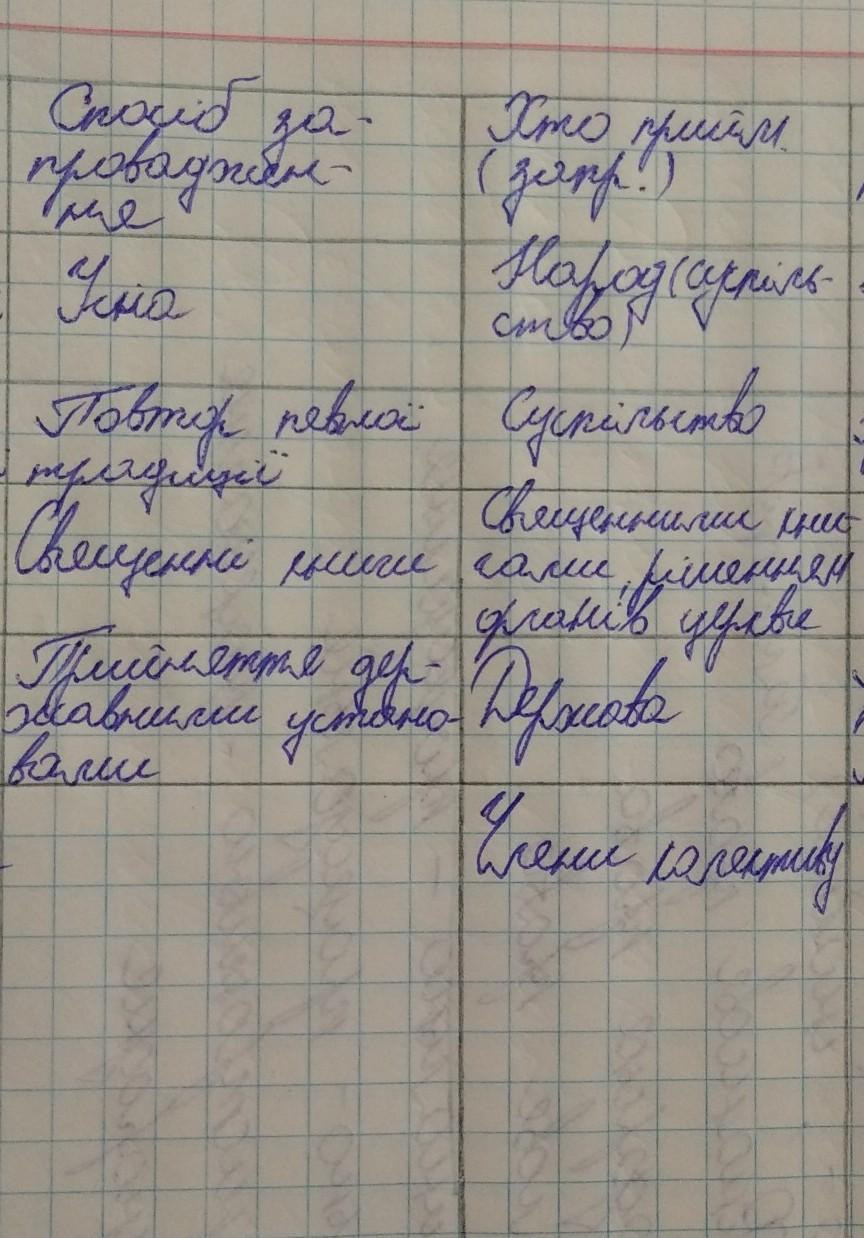 Спосіб за-
провaджен-
ня
Хто прийм.
(запр.)
Усна
Народ (суспіль-
ство)
Повтор певної
традиції
Суспільство
Священні книги
Священними кни-
гами, рішенням
органів церкви
Прийняття дер-
жавними устано-
вами
Держава
Члени колективу